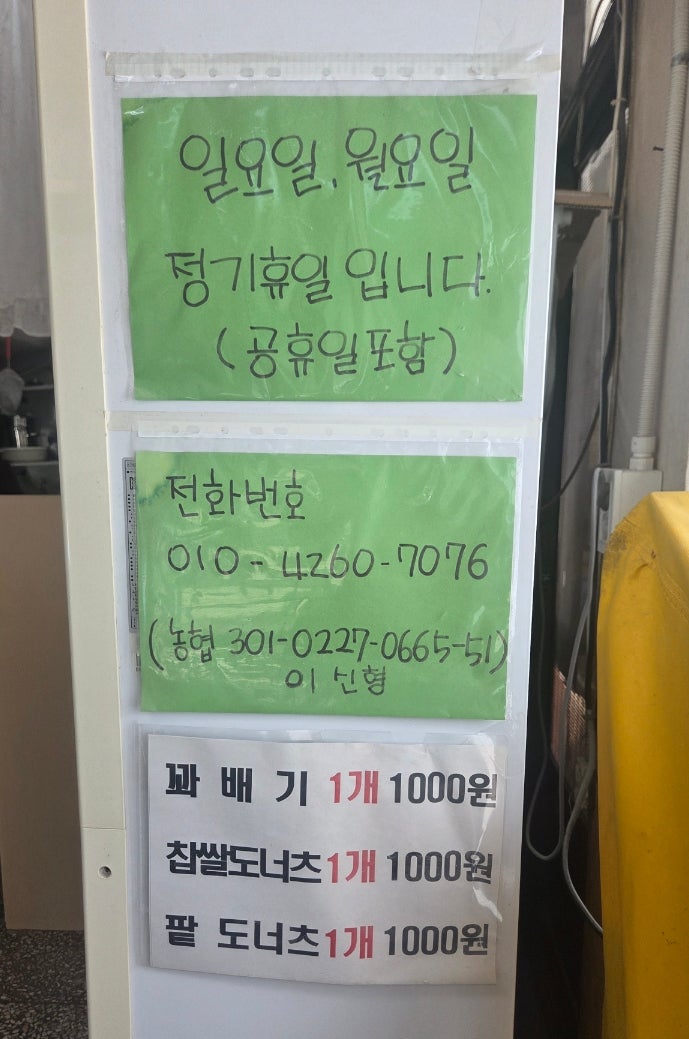 일요일, 월요일
정기휴일 입니다.
(공휴일포함)
전화번호
010-4260-7076
(농협 301-0227-0665-51)
이신형
꽈배기 1개 1000원
찹쌀도너츠 1개 1000원
팥 도너츠 1개 1000원